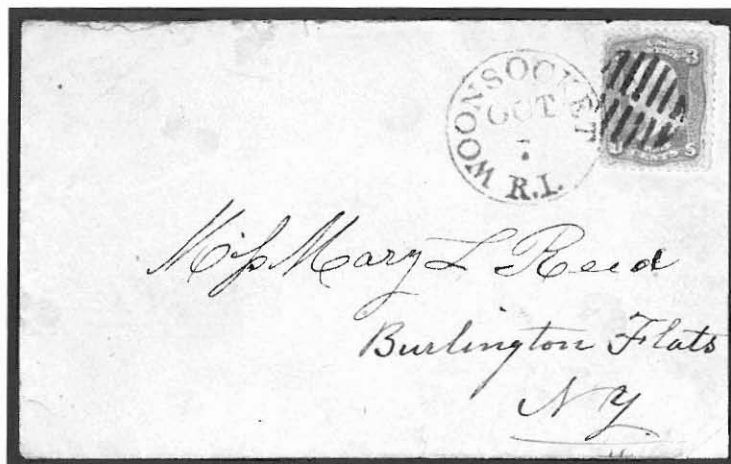 WOONSOCKET
OCT
7
R.I.
3 3
Miss Mary L Reed
Burlington Flats
NY